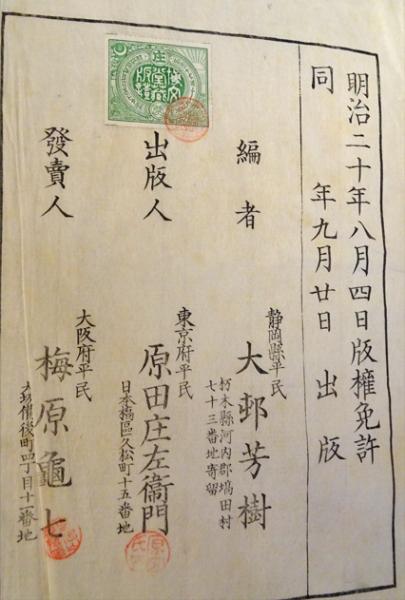 明治二十年八月四日版權免許
同　年九月廿日　出版
編者
靜岡縣平民
大邨芳樹
栃木縣河内郡塙田村
七十三番地寄留
出版人
東京府平民
原田庄左衞門
日本橋區久松町十五番地
發賣人
大阪府平民
梅原龜七